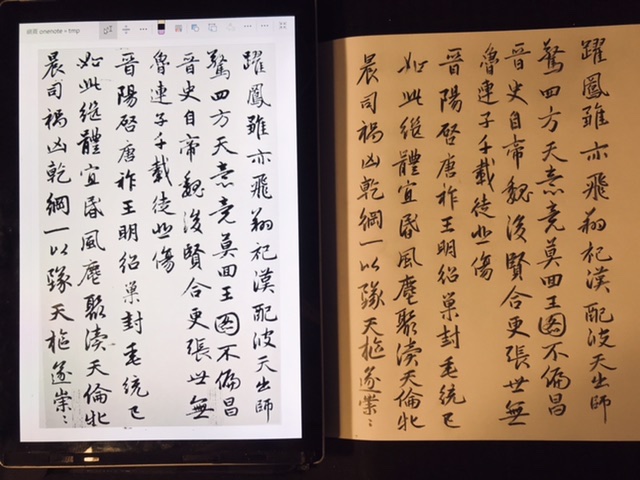 onenote > tmp
躍鳳雛亦飛翔祀漢配彼天出師
驚四方天意竟莫回王图不偏昌
晉史自帝魏後賢合更張世無
魯連子千載徒悲傷
晉陽啓唐祚王明紹巢封垂統已
如此繼體宜昏風麀聚瀆天倫牝
晨司禍凶乾綱一以墜天樞遂崇〻
躍鳳雛亦飛翔祀漢配彼天出師
驚四方天意竟莫回王图不偏昌
晉史自帝魏後賢合更張世無
魯連子千載徒悲傷
晉陽啓唐祚王明紹巢封垂統已
如此繼體宜昏風麀聚瀆天倫牝
晨司禍凶乾綱一以墜天樞遂崇〻